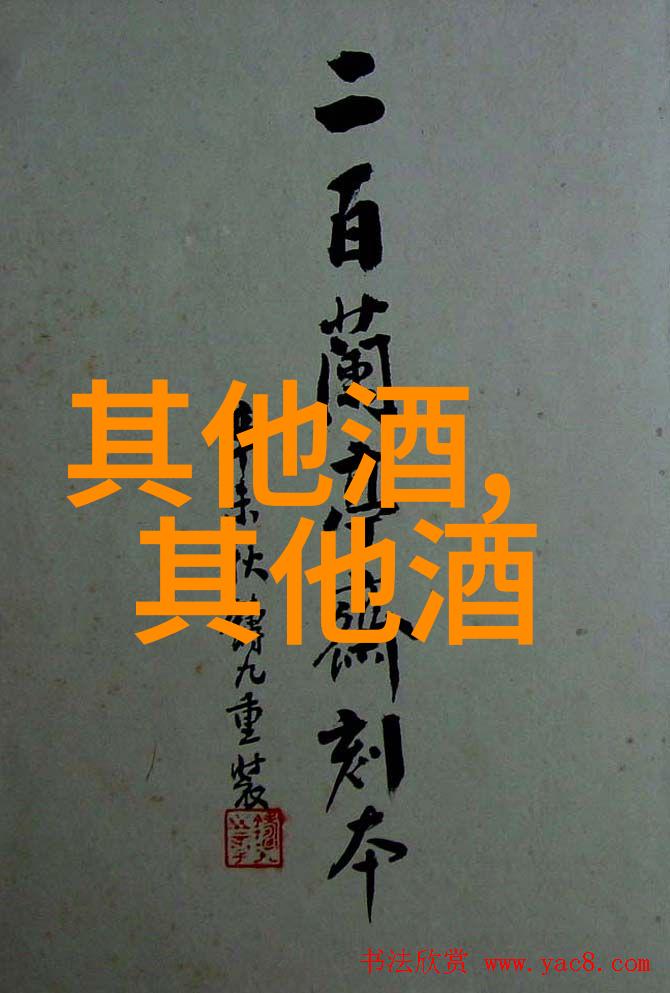 二百蘭亭齋刻本
未九重裝
其他酒,
其他酒
书法欣赏 www.yac8.com